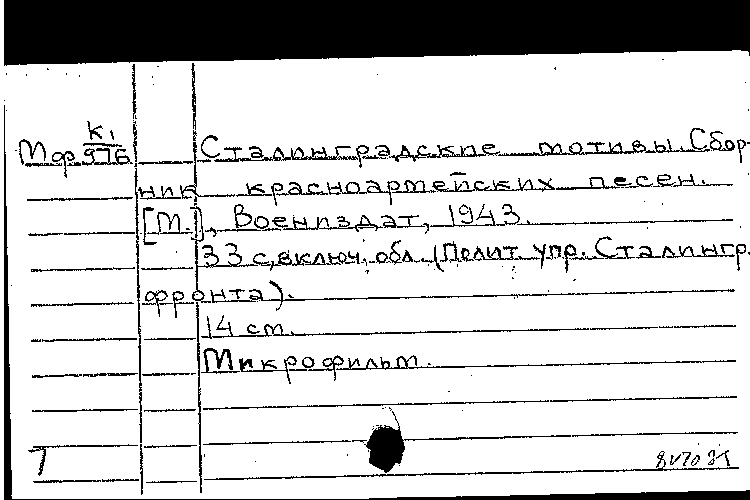 К1
Мф 976 Сталинградские мотивы. Сбор-
ник красноармейских песен.
[М.], Воениздат, 1943.
33 с, включ. обл. (Полит. упр. Сталингр.
фронта).
14 см.
Микрофильм.